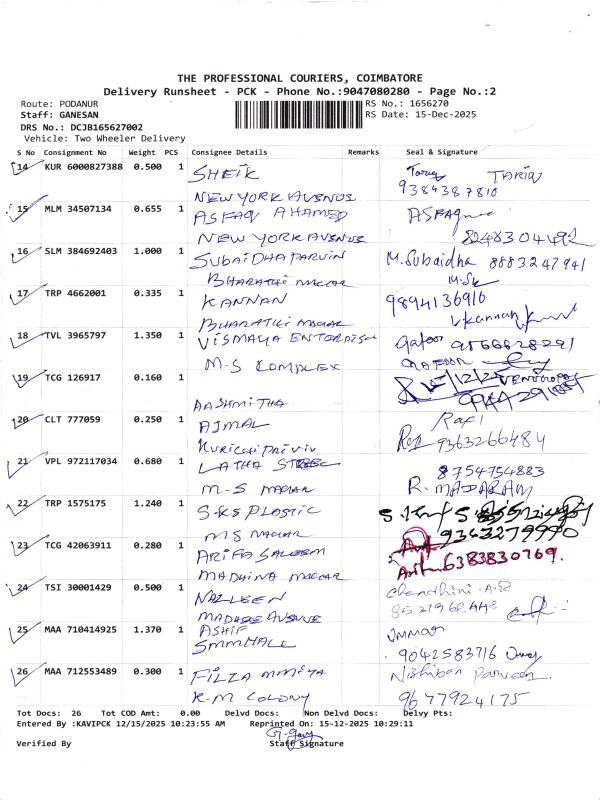 THE PROFESSIONAL COURIERS, COIMBATORE
Delivery Runsheet - PCK - Phone No.:9047080280 - Page No.:2
Route: PODANUR RS No.: 1656270
Staff: GANESAN RS Date: 15-Dec-2025
DRS No.: DCJB165627002
Vehicle: Two Wheeler Delivery
S No Consignment No Weight PCS Consignee Details Remarks Seal & Signature
14 KUR 6000827388 0.500 1 SHEIK TARIQ
NEW YORK AVENUE 9384387810
15 MLM 34507134 0.655 1 ASFAQ AHAMED
NEW YORK AVENUE 8248304492
16 SLM 384692403 1.000 1 SUBAIDHA PARVIN M.Subaidha 8883247941
BHARATHI NAGAR
17 TRP 4662001 0.335 1 KANNAN 9894136916
BHARATHI NAGAR V.Kannan
18 TVL 3965797 1.350 1 VISMAYA Gafoor 9566628291
M-S COMPLEX GAFOOR
19 TCG 126917 0.160 1
AASHMITHA
20 CLT 777059 0.250 1 AJMAL Rafi
9363266484
21 VPL 972117034 0.680 1 LATHA 8754754883
M-S NAGAR
22 TRP 1575175 1.240 1 S-KS PLASTIC
MS NAGAR 9363279990
23 TCG 42063911 0.280 1 ARIFA SALEEM
MADHINA NAGAR 6383830769.
24 TSI 30001429 0.500 1 NAZLEEN Chandhini
AVENUE
25 MAA 710414925 1.370 1 ASHIF UMMAR
SMM HALL 9042583716
26 MAA 712553489 0.300 1 Parveen
K.M COLONY 9677924175
Tot Docs: 26 Tot COD Amt: 0.00 Delvd Docs: Non Delvd Docs: Delvy Pts:
Entered By :KAVIPCK 12/15/2025 10:23:55 AM Reprinted On: 15-12-2025 10:29:11
Verified By Staff Signature